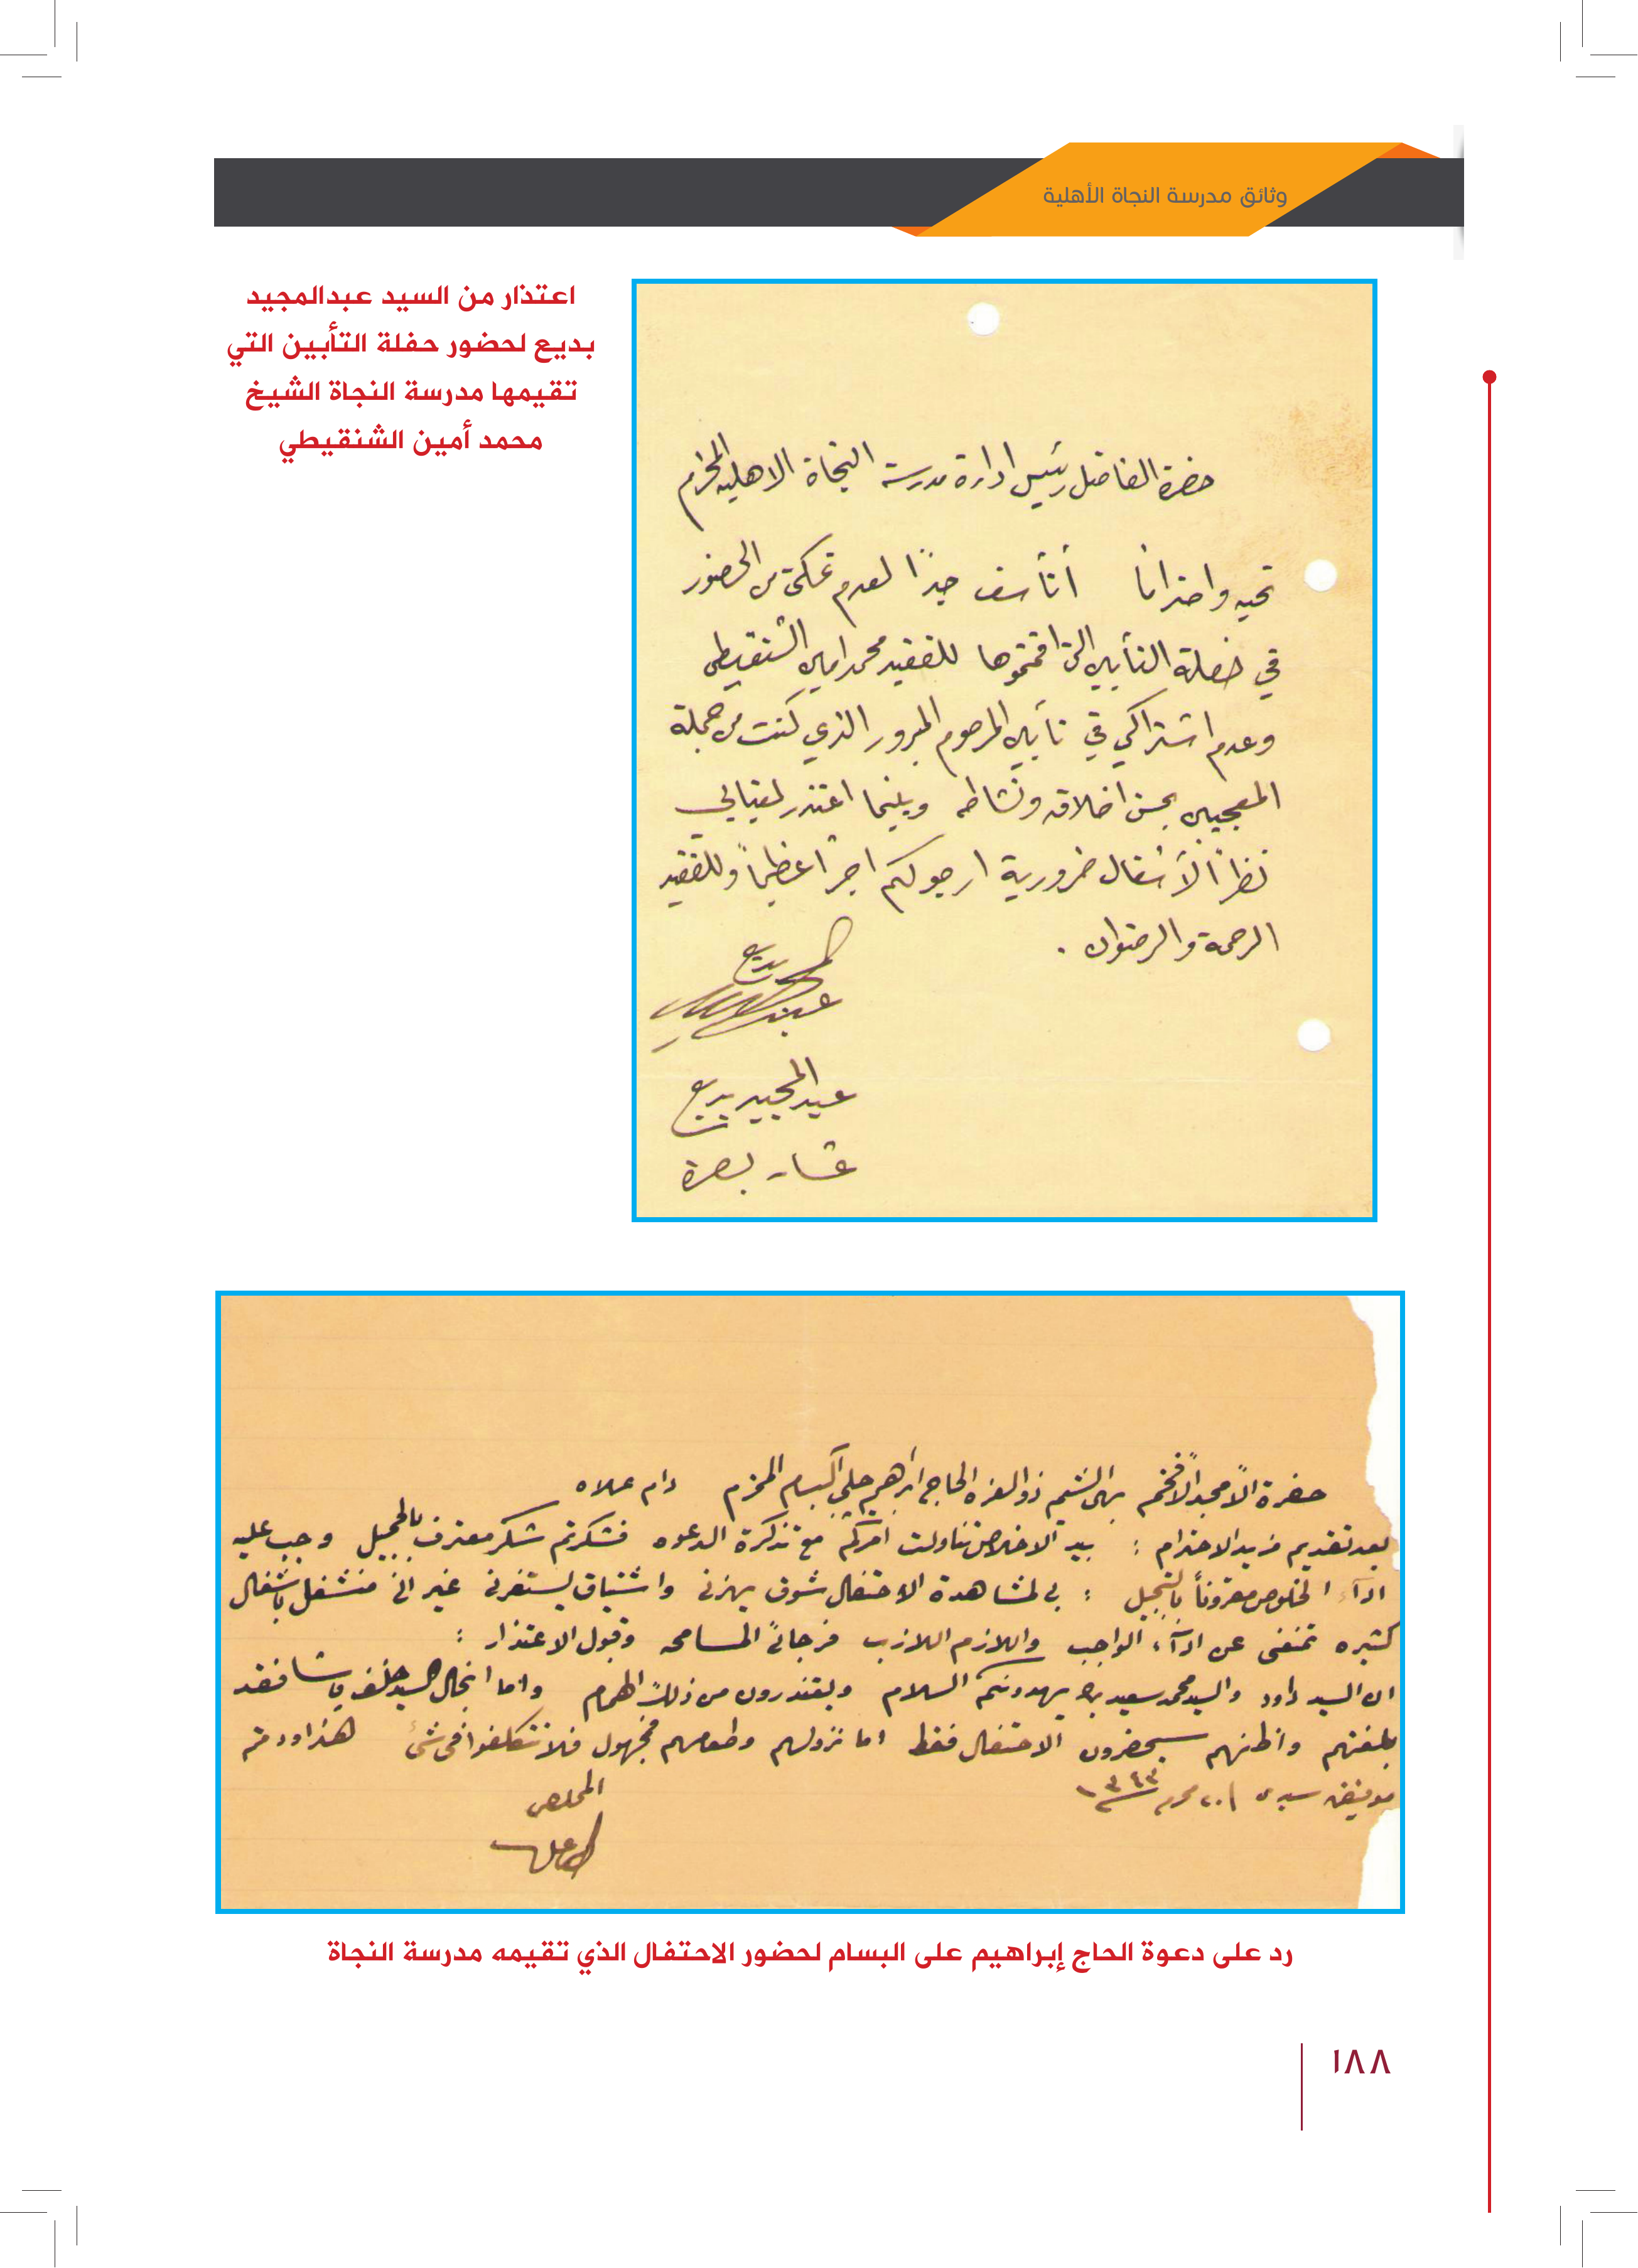 وثائق مدرسة النجاة الأهلية
اعتذار من السيد عبدالمجيد
بديع لحضور حفلة التأبين التي
تقيمها مدرسة النجاة الشيخ
محمد أمين الشنقيطي
حضرة الفاضل رئيس ادارة مدرسة النجاة الاهليه المحترم
تحيه واحتراماً أتأسف جداً لعدم تمكني من الحضور
في حفلة التأبين التي اقمتموها للفقيد محمد امين الشنقيطي
وعدم اشتراكي في تأبين المرحوم المبرور الذي كنت من جملة
المعجبين بحسن اخلاقه ونشاطه وبينما اعتذر لغيابي
نظراً لأشغال ضرورية ارجو لكم اجراً عظيماً وللفقيد
الرحمة والرضوان .
بديع
عبدالمجيد بديع
عشار بصرة
حضرة الأمجد الأفخم بهي الشيم ذو العزه الحاج ابراهيم البسام المحترم دام علاه
بعد تقديم مزيد الاحترام : بيد الاخلاص تناولت امركم مع تذكرة الدعوه فشكرتم شكر معترف بالجميل وجب عليه
ادآء الخلوص مقروناً بالتبجيل : بي لمشاهدة الاحتفال شوق يهزني واشتياق يستفزني غير اني منشغل باشغال
كثيره تمنعني عن ادآء الواجب واللازم اللازب فرجائي المسامحه وقبول الاعتذار :
ان السيد داود والسيد محمد سعيد يهدونكم السلام ويعتذرون من ذلك واما انجال السيد خلف باشا فقد
بلغتهم واظنهم سيحضرون الاحتفال فقط اما نزولهم وطعامهم فمجهول فلا تتكلفوا في شئ هذا ودمتم
محرم ١٣٤٣
المخلص
رد على دعوة الحاج إبراهيم على البسام لحضور الاحتفال الذي تقيمه مدرسة النجاة
١٨٨